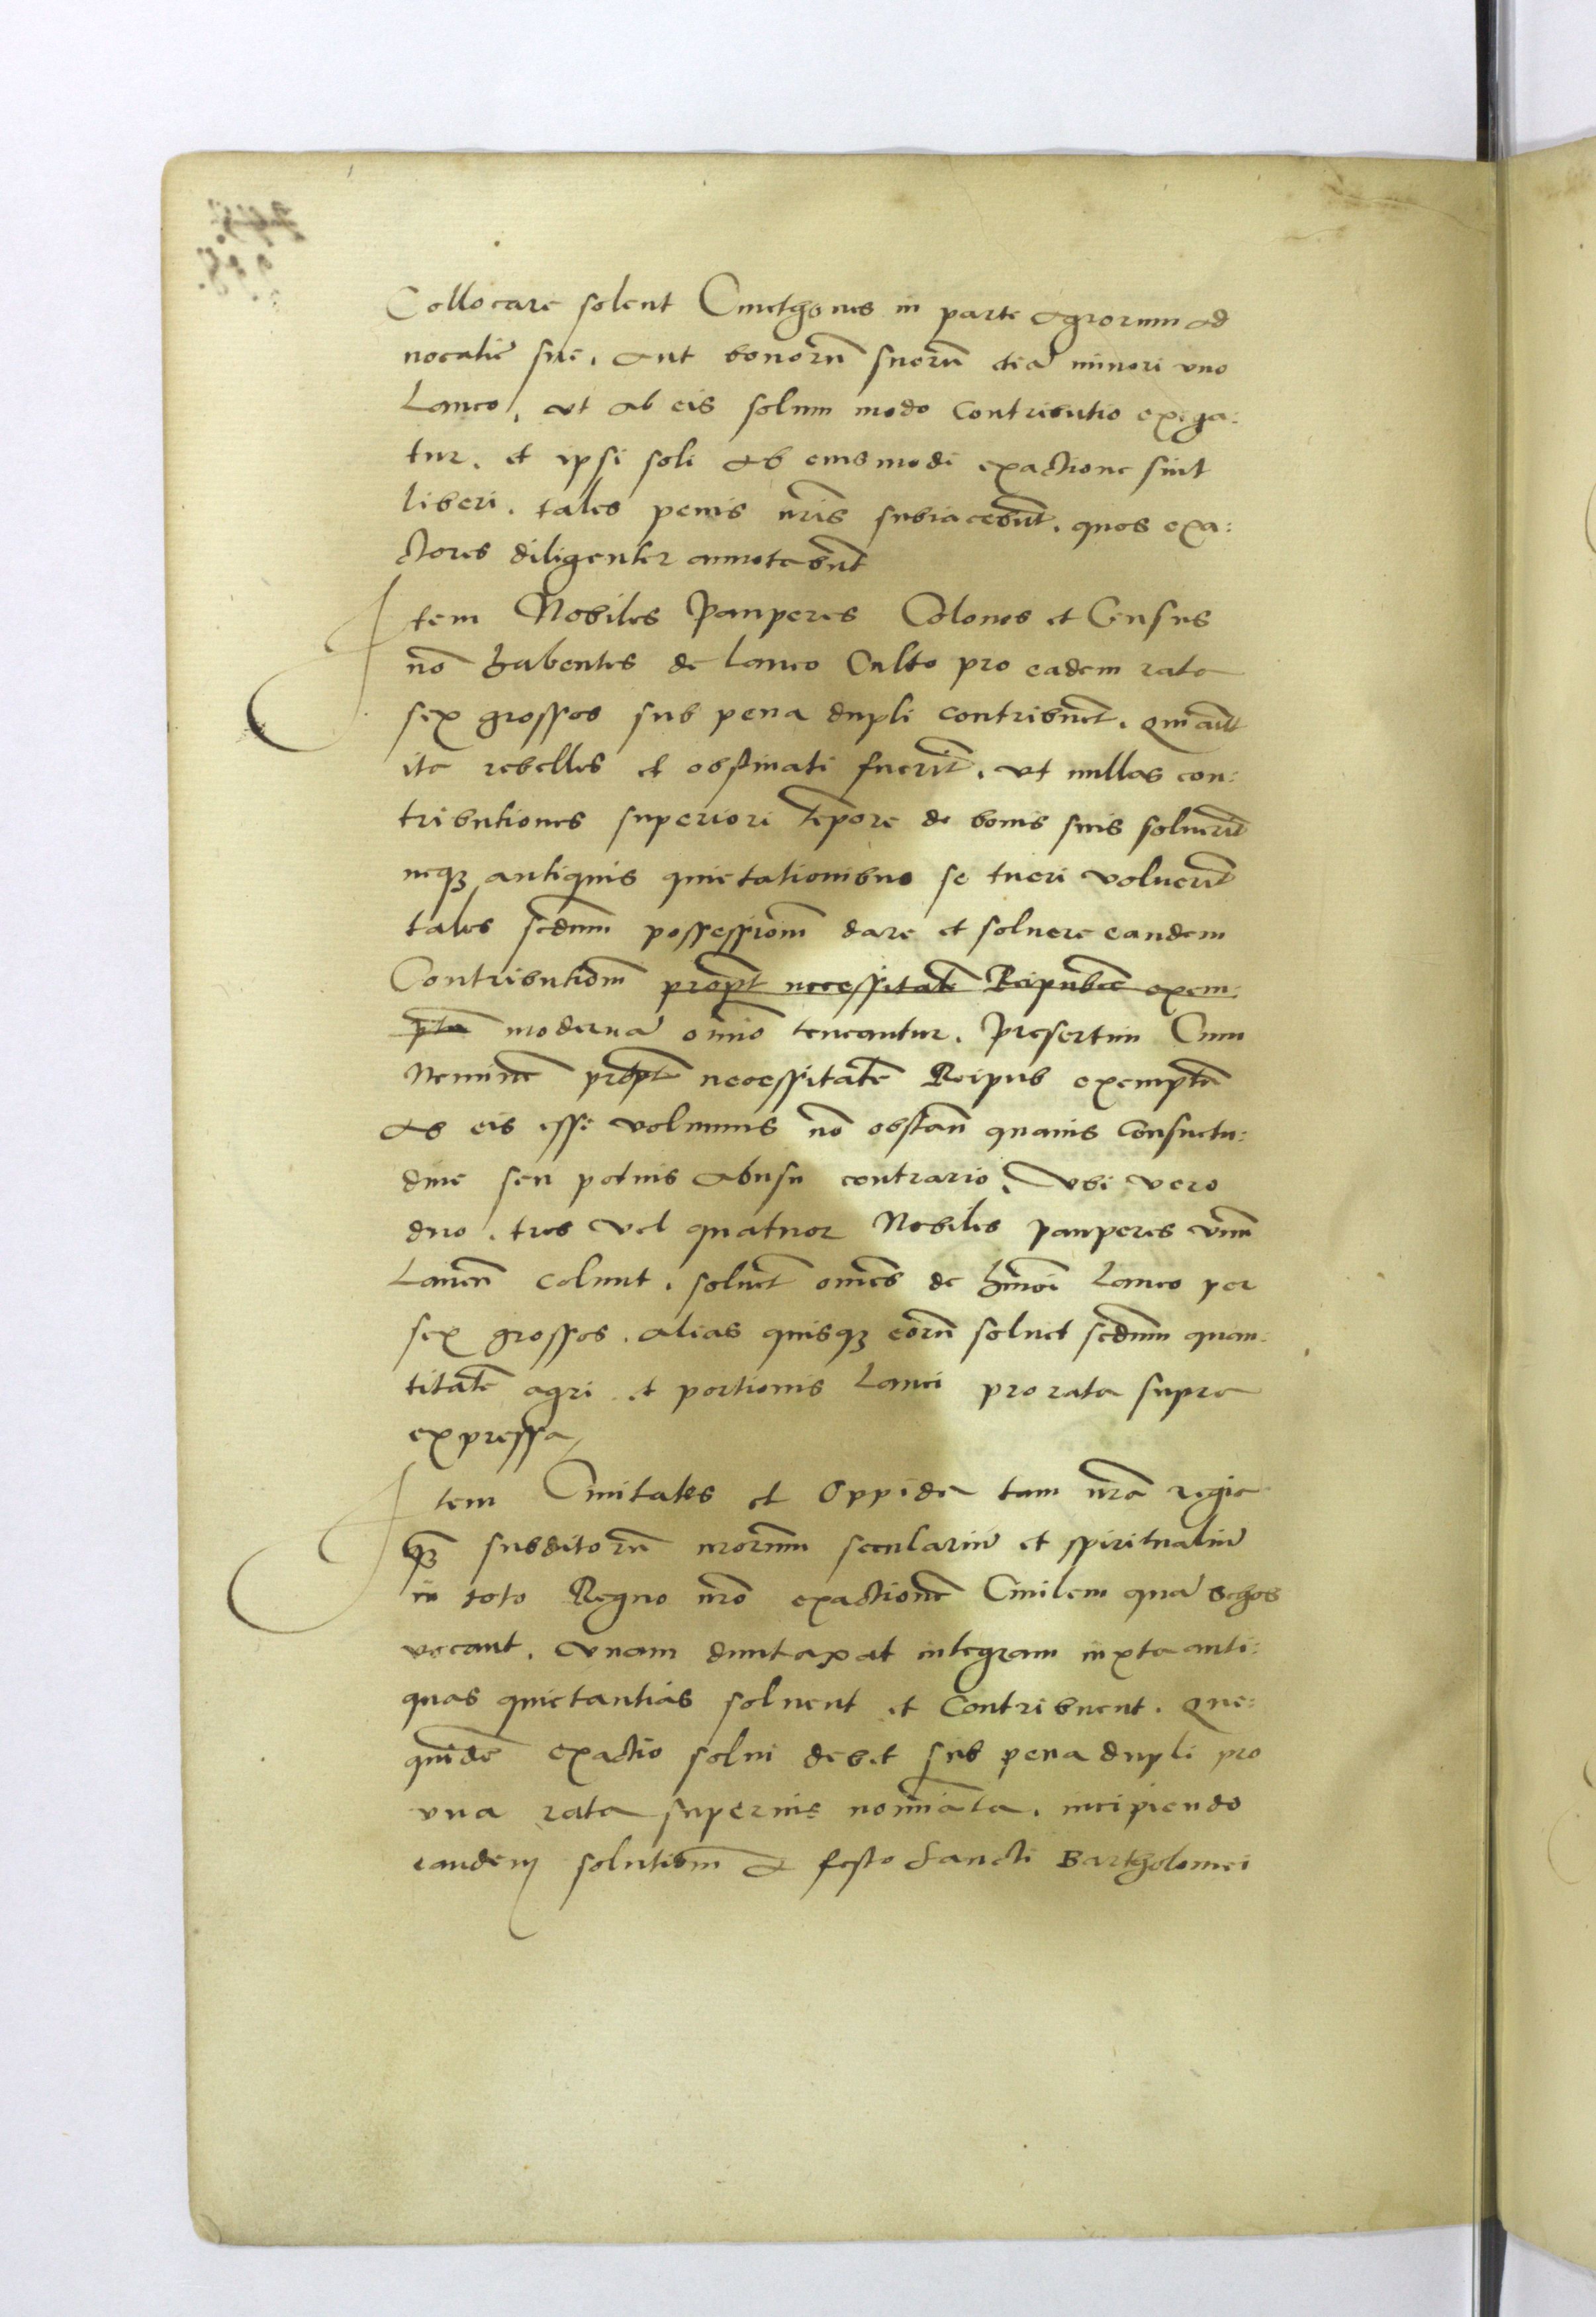 Collocare solent Cmethones in parte agrorum ad
uocatie sue. aut bonorũ suorũ etiã minori vno
Laneo, vt ab eis solum modo contributio exiga:
tur. et ipsi soli ab eiusmodi exactione sint
liberi. tales penis nr̃is subiacebũt. quos exa:
ctores diligenter annotabũt
Item Nobiles Pauperes Colonos et Census
nõ habentes de laneo Culto pro eadem rata
sex grossos sub pena dupli contribuẽt. Qui aũt
ita rebelles et obstinati fuerĩt. vt nullas con:
tributiones superiori tẽpore de bonis suis soluerĩt
neqz antiquis quietationibus se tueri voluerĩt
tales scdum possessionẽ dare et soluere eandem
Contributionẽ propt necessitatẽ Reipublicẽ exem:
ptã modernã omĩno teneantur. Presertim Cum
Neminẽ propt necessitatẽ Reipub exemptũ
ab eis esse volumus nõ obstañ quauis Consuetu:
dine seu potius abusu contrario. Vbi vero
duo. tres vel quatuor Nobiles pauperes vnũ
Laneũ colunt. soluẽt omẽs de hm̃õi Laneo per
sex grossos. alias quisqz eorũ soluet scdum quan:
titatẽ agri et portionis Lanei pro rata supra
expressa
Item Ciuitates et Oppida tam nr̃a regia
qz̃ subditorũ nr̃orum seculariũ et spiritualiũ
in toto Regno nr̃o exactionẽ Ciuilem quã schos
vocant. vnam duntaxat integram iuxta anti:
quas quietantias soluent et Contribuent. Que:
quidẽ exactio solui debet sub pena dupli pro
vna rata superius nominata. incipiendo
eandem solutionẽ a festo Sancti Bartholomei